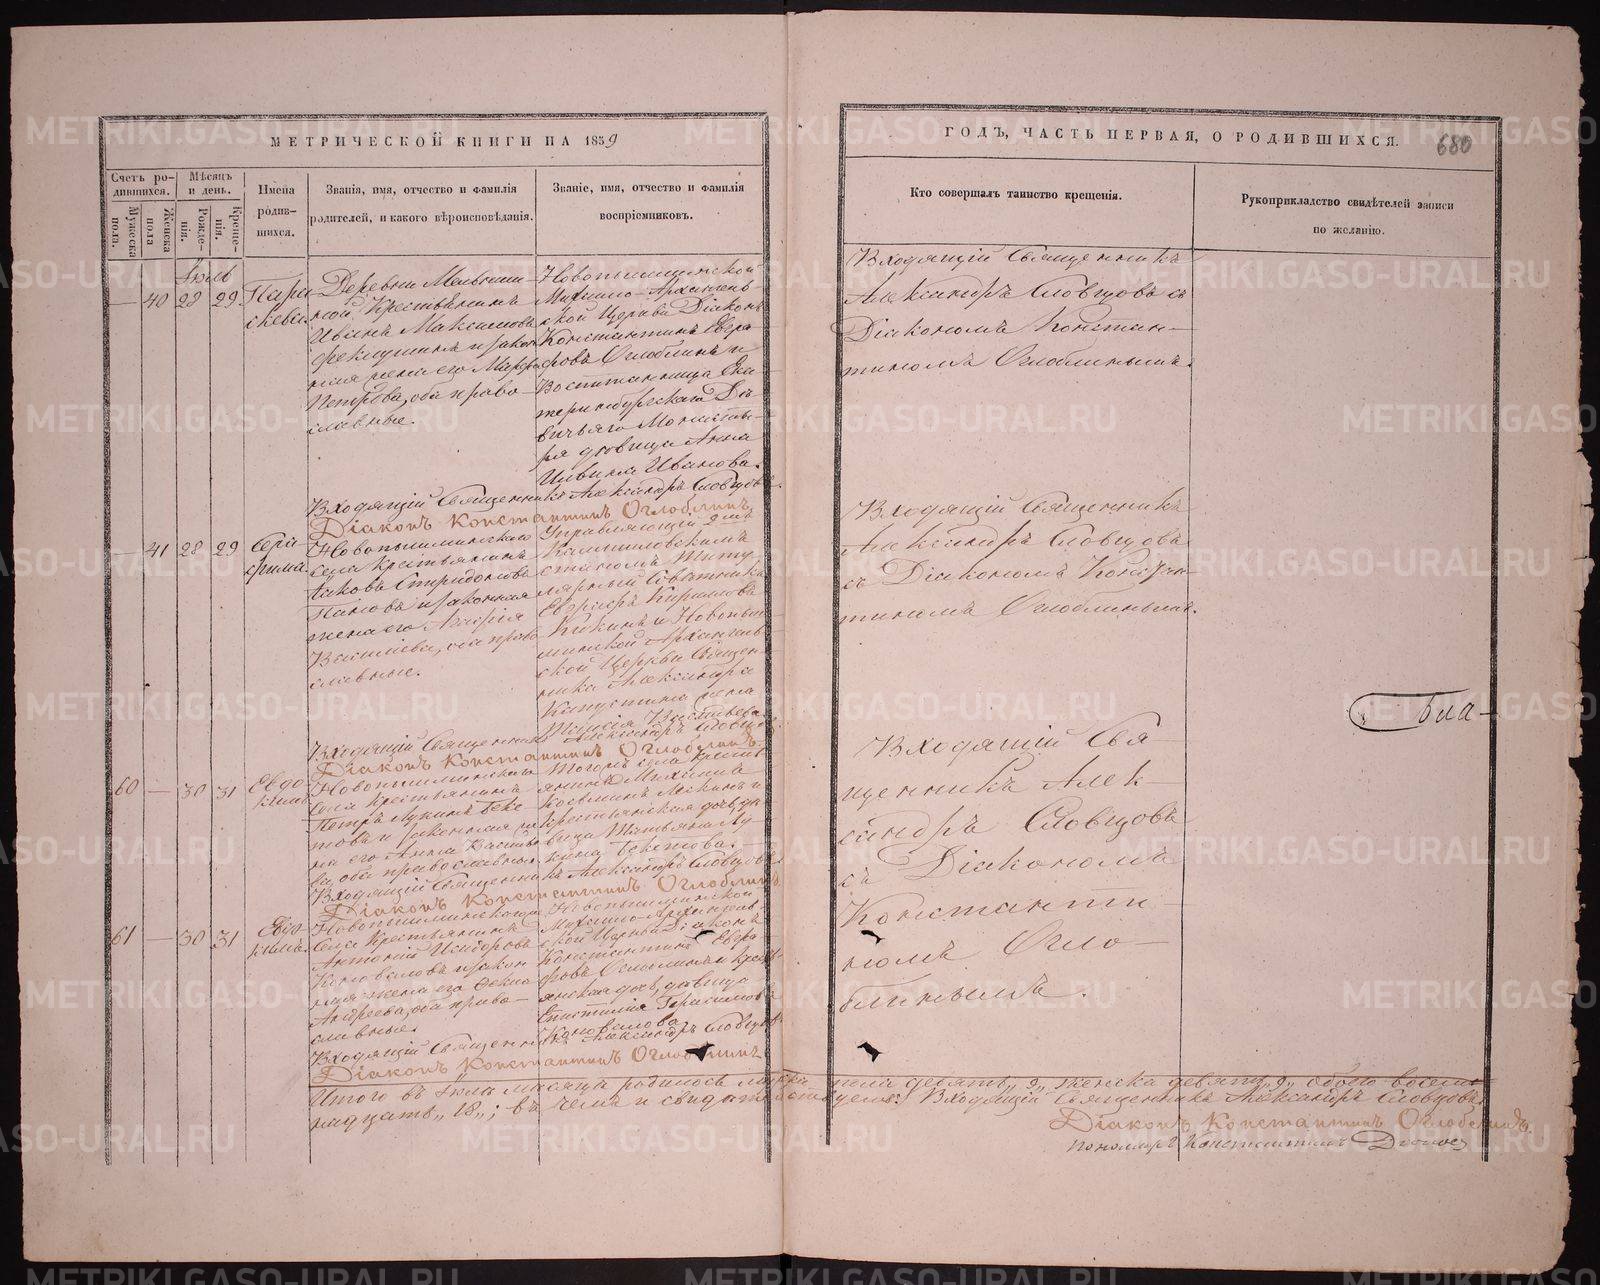 МЕТРИЧЕСКОЙ КНИГИ НА 1859
ГОДЪ, ЧАСТЬ ПЕРВАЯ, О РОДИВШИХСЯ.
680
Счетъ ро-
дившихся.
Мужеска
пола.
Женска
пола
Мѣсяцъ
и день.
Рожде-
нія.
Креще-
нія.
Имена
родив-
шихся.
Званія, имя, отчество и фамилія
родителей, и какого вѣроисповѣданія.
Званіе, имя, отчество и фамилія
воспріемниковъ.
Кто совершалъ таинство крещенія.
Рукоприкладство свидѣтелей записи
по желанію.
Іюль
— 40 28 29
Пара
скева.
Деревни
ной Крестьянинъ
Иванъ Максимовъ
и закон
ная жена его Марфа
Петрова, оба право-
славные.
Новопышминской
Михаило-Архангель-
ской Церкви Діаконъ
Константинъ Евгра-
фовъ Оглоблинъ и
Воспитанница Ека-
теринбургскаго Дѣ-
вичьяго Монасты-
ря девица Анна
Иванова.
Входящій Священникъ
Александръ Словцовъ съ
Діакономъ Констан-
тиномъ Оглоблинымъ.
Входящій Священникъ Александръ Словцовъ.
Діаконъ Константинъ Оглоблинъ
— 41 28 29
Сера
фима.
Новопышминскаго
села Крестьянинъ
Яковъ Спиридоновъ
Пановъ и законная
жена его
оба право
славные.
Управляющій 2мъ
Камышловскимъ
станомъ Титу-
лярный Совѣтникъ
Кириловъ
и Новопыш-
минской Архангель-
ской Церкви Священ-
ника Александра
жена
Входящій Священникъ
Александръ Словцовъ
съ Діакономъ Констан-
тиномъ Оглоблинымъ.
Входящій Священникъ Александръ Словцовъ
Діаконъ Константинъ Оглоблинъ
60 — 30 31
Евдо
кимъ
Новопышминскаго
села Крестьянинъ
Петръ Лукинъ Беке
товъ и законная же
на его Анна
ва, оба православные.
Тогожъ села Кресть
янинъ
и
Крестьянская дочь, де
вица Татьяна Лу
кина Бекетова.
Входящій Свя-
щенникъ Алек-
сандръ Словцовъ
съ Діакономъ
Константи-
номъ Огло-
блинымъ.
бла-
Входящій Священникъ Александръ Словцовъ
Діаконъ Константинъ Оглоблинъ
61 — 30 31
Евдо-
кимъ.
Новопышминскаго
села Крестьянинъ
Антоній Исидоровъ
Коноваловъ и закон
ная жена его
Андреева, оба право-
славные.
Новопышминской
Михаило-Архангель-
ской Церкви Діаконъ
Константинъ Евгра-
фовъ Оглоблинъ и кресть-
янская дочь, девица
Герасимова
Коновалова.
Входящій Священникъ Александръ Словцовъ
Діаконъ Константинъ Оглоблинъ
Итого въ Іюлѣ мѣсяцѣ родилось мужска пола девять „9„ женска девять „9„ обоего восем-
надцать „18„; въ чемъ и свидѣтельствуемъ: Входящій Священникъ Александръ Словцовъ.
Діаконъ Константинъ Оглоблинъ.
Пономарь Константинъ
METRIKI.GASO-URAL.RU